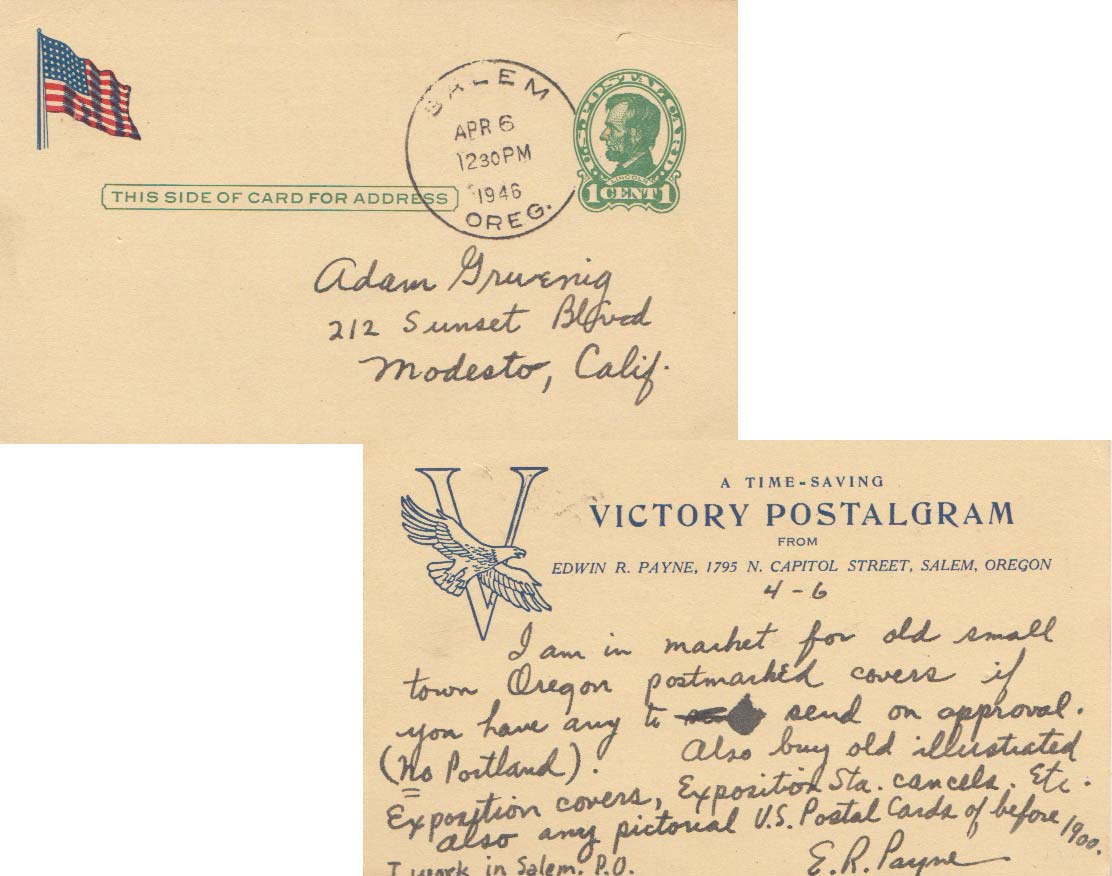 SALEM
APR 6
1230 PM
1946
OREG.
U.S. POSTAL CARD
LINCOLN
1 CENT 1
THIS SIDE OF CARD FOR ADDRESS
Adam Gruenig
212 Sunset Blvd
Modesto, Calif.
A TIME-SAVING
VICTORY POSTALGRAM
FROM
EDWIN R. PAYNE, 1795 N. CAPITOL STREET, SALEM, OREGON
4-6
I am in market for old small
town Oregon postmarked covers if
you have any to send on approval.
(No Portland). Also buy old illustrated
Exposition covers, Exposition Sta. cancels. Etc.
also any pictorial U.S. Postal Cards of before 1900.
I work in Salem. P.O.
E.R. Payne